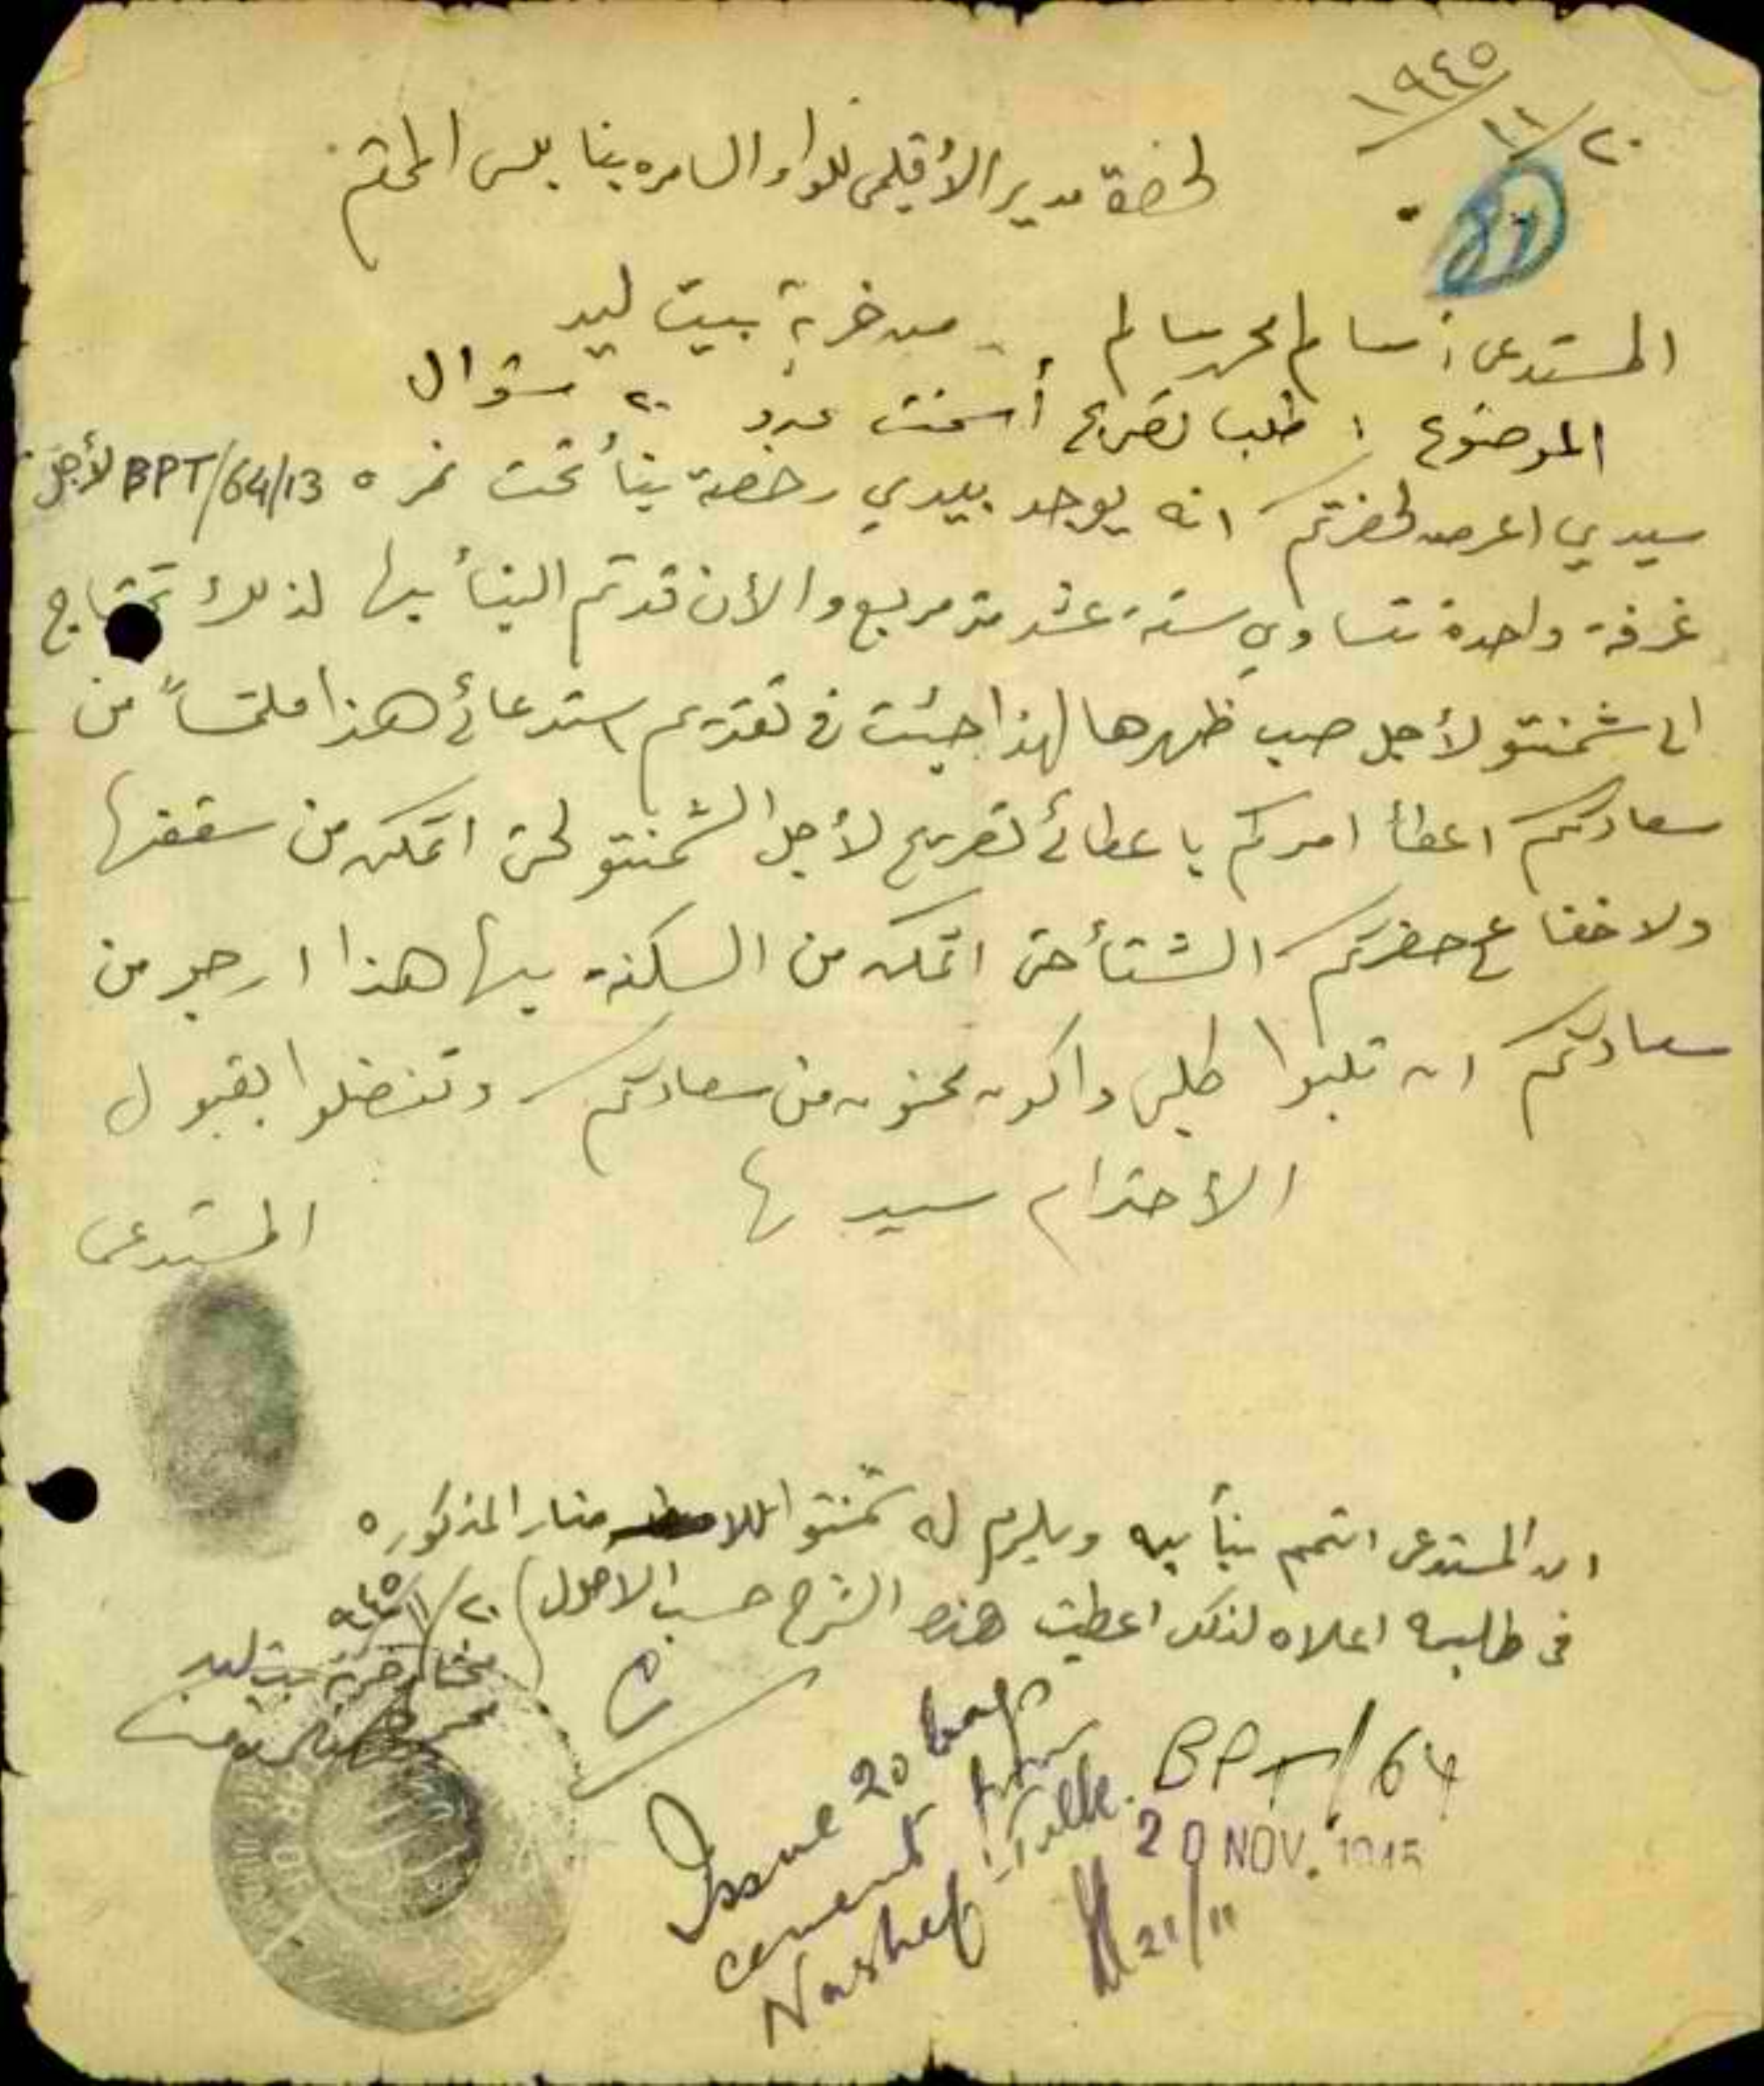 ١٩٤٥/١١/٢٠
لحضرة مدير الأقليمى للواء السامره بنابلس المحترم
المستدعى : سالم محمد سالم من خربة بيت ليد
الموضوع : طلب تصريح أسمنت عدد ٢٠ شوال
سيدي اعرض لحضرتكم انه يوجد بيدي رخصة بنأ تحت نمره BPT/64/13 لأجل
غرفة واحدة تساوي ستة عشر متر مربع والأن قد تم البنأ بها لذلك تحتاج
الى شمنتو لأجل صب ظهرها لهذا جئت في تقديم استدعائي هذا ملتمساً من
سعادتكم اعطأ امركم باعطائي تصريح لأجل الشمنتو لحتى اتمكن من سقفها
ولا خفا ع حضرتكم الشتأ حتى اتمكن من السكنة بها هذا ارجو من
سعادتكم ان تلبوا طلبي واكون ممنون من سعادتكم وتفضلوا بقبول
الأحترام سيدي
المستدعى
ان المستدعى اتمم بنأ بيه ويلزم له شمنتو المذكوره
في طلبه اعلاه لذلك اعطيت هذه الشرح حسب الاصول ٢٠/١١/٩٤٥
مختار خربة بيت ليد
Issue 20 bags
cement from
Nashef Tulk.
BPT/64
20 NOV. 1945
21/11